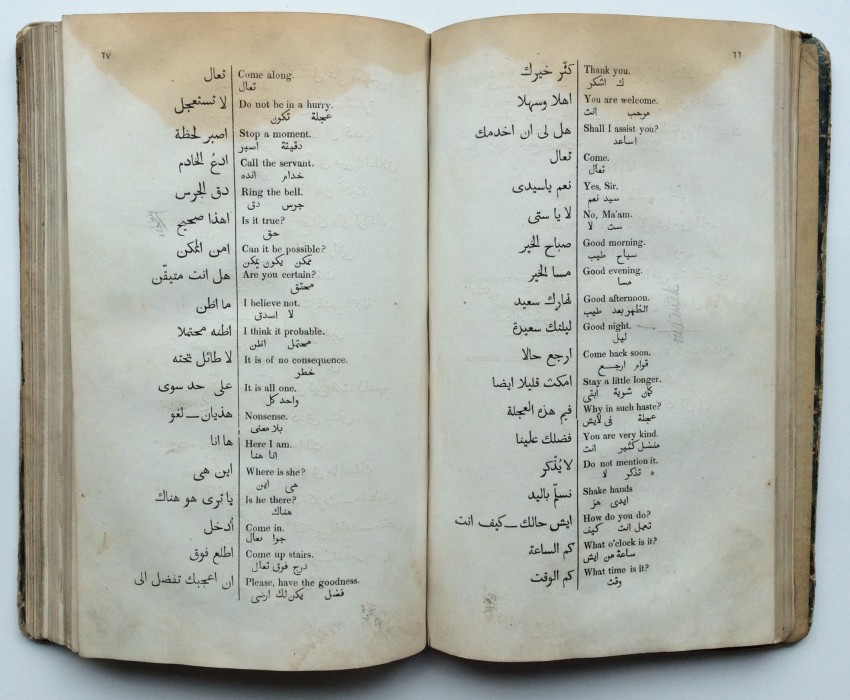 ٦٦
كثّر خيرك Thank you.
ك اشكر
اهلا وسهلا You are welcome.
مرحب انت
هل لى ان اخدمك Shall I assist you?
اساعد
تعال Come.
تعال
نعم ياسيدى Yes, Sir.
سيد نعم
لا يا ستى No, Ma'am.
ست لا
صباح الخير Good morning.
سباح طيب
مسا الخير Good evening.
مسا
نهارك سعيد Good afternoon.
الظهر بعد طيب
ليلتك سعيدة Good night.
ليل
ارجع حالا Come back soon.
قوام ارجع
امكث قليلا ايضا Stay a little longer.
كمّن شوية ابقى
فيم هذه العجلة Why in such haste?
عجلة فى لايش
فضلك علينا You are very kind.
متفضل كثير انت
لا يُذْكر Do not mention it.
ه تذكر لا
نسلّم باليد Shake hands
ايدى هز
ايش حالك ــ كيف انت How do you do?
تعمل انت كيف
كم الساعة What o'clock is it?
ساعة من ايش
كم الوقت What time is it?
وقت
٦٧
تعال Come along.
تعال
لا تستعجل Do not be in a hurry.
عجلة تكون
اصبر لحظة Stop a moment.
دقيقة اسبر
ادعُ الخادم Call the servant.
خدام انده
دق الجرس Ring the bell.
جرس دق
اهذا صحيح Is it true?
حق
امن الممكن Can it be possible?
ممكن يكون يمكن
هل انت متيقّن Are you certain?
محقق
ما اظن I believe not.
لا اسدق
اظنه محتملا I think it probable.
محتمل اظن
لا طائل تحته It is of no consequence.
خطر
على حد سوى It is all one.
واحد كل
هذيان ــ لغو Nonsense.
بلا معنى
ها انا Here I am.
انا هنا
اين هى Where is she?
هى اين
يا ترى هو هناك Is he there?
هناك
اُدخل Come in.
جوا تعال
اطلع فوق Come up stairs.
درج فوق تعال
ان اعجبك تفضل الى Please, have the goodness.
فضل يكن لك ارضى